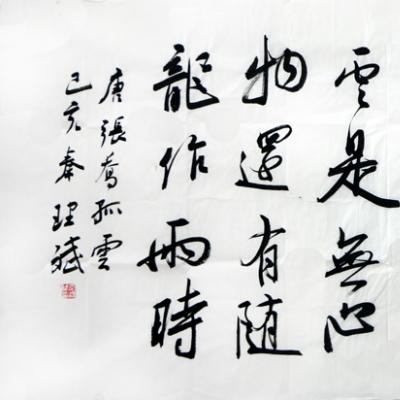 雲是無心
物還有随
龍作雨時
唐張喬孤雲
己亥秦理斌